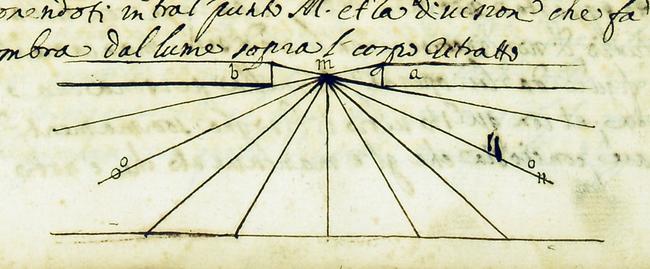 ponendoti intral punto M. et la diuision che fa
ombra dal lume sopra l corpo
b m a
o o o n